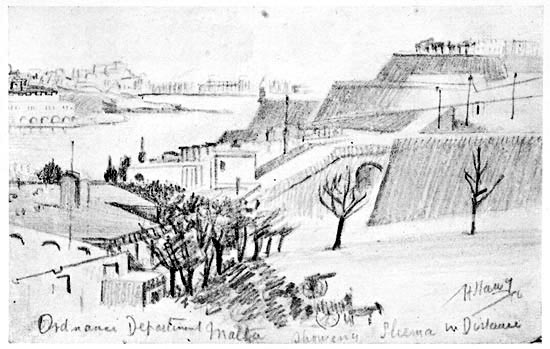 Ordnance Department Malta showing Sliema in Distance